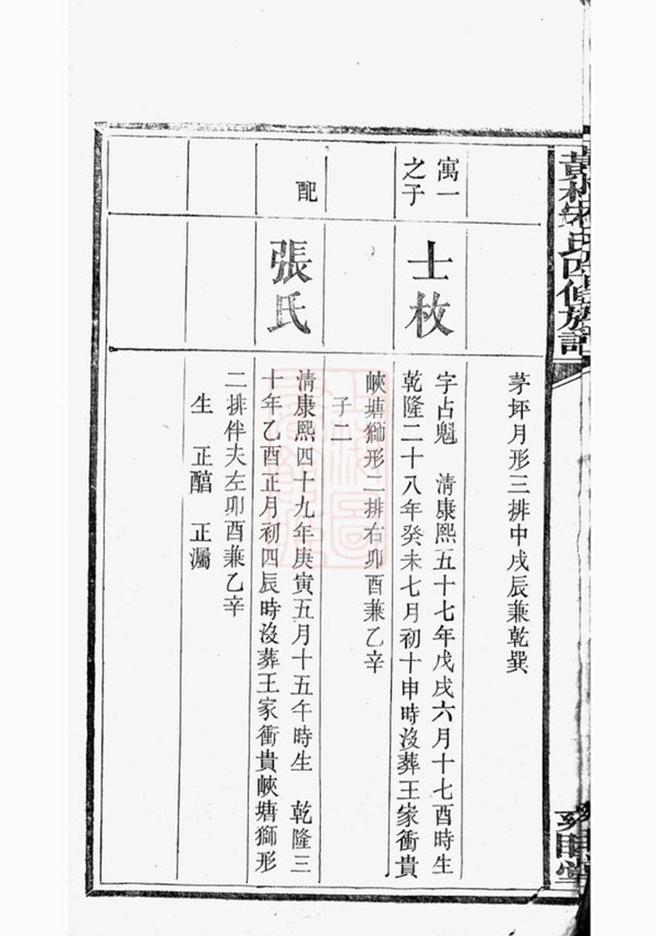 茅坪月形三排中戌辰兼乾巽
寓一之子
士枚
字占魁　清康熙五十七年戊戌六月十七酉時生
乾隆二十八年癸未七月初十申時沒葬王家衝貴
峽塘獅形二排右卯酉兼乙辛
子二
配
張氏
清康熙四十九年庚寅五月十五午時生　乾隆三
十年乙酉正月初四辰時沒葬王家衝貴峽塘獅形
二排伴夫左卯酉兼乙辛
生　正醕　正灟
氏四修族記
睦堂